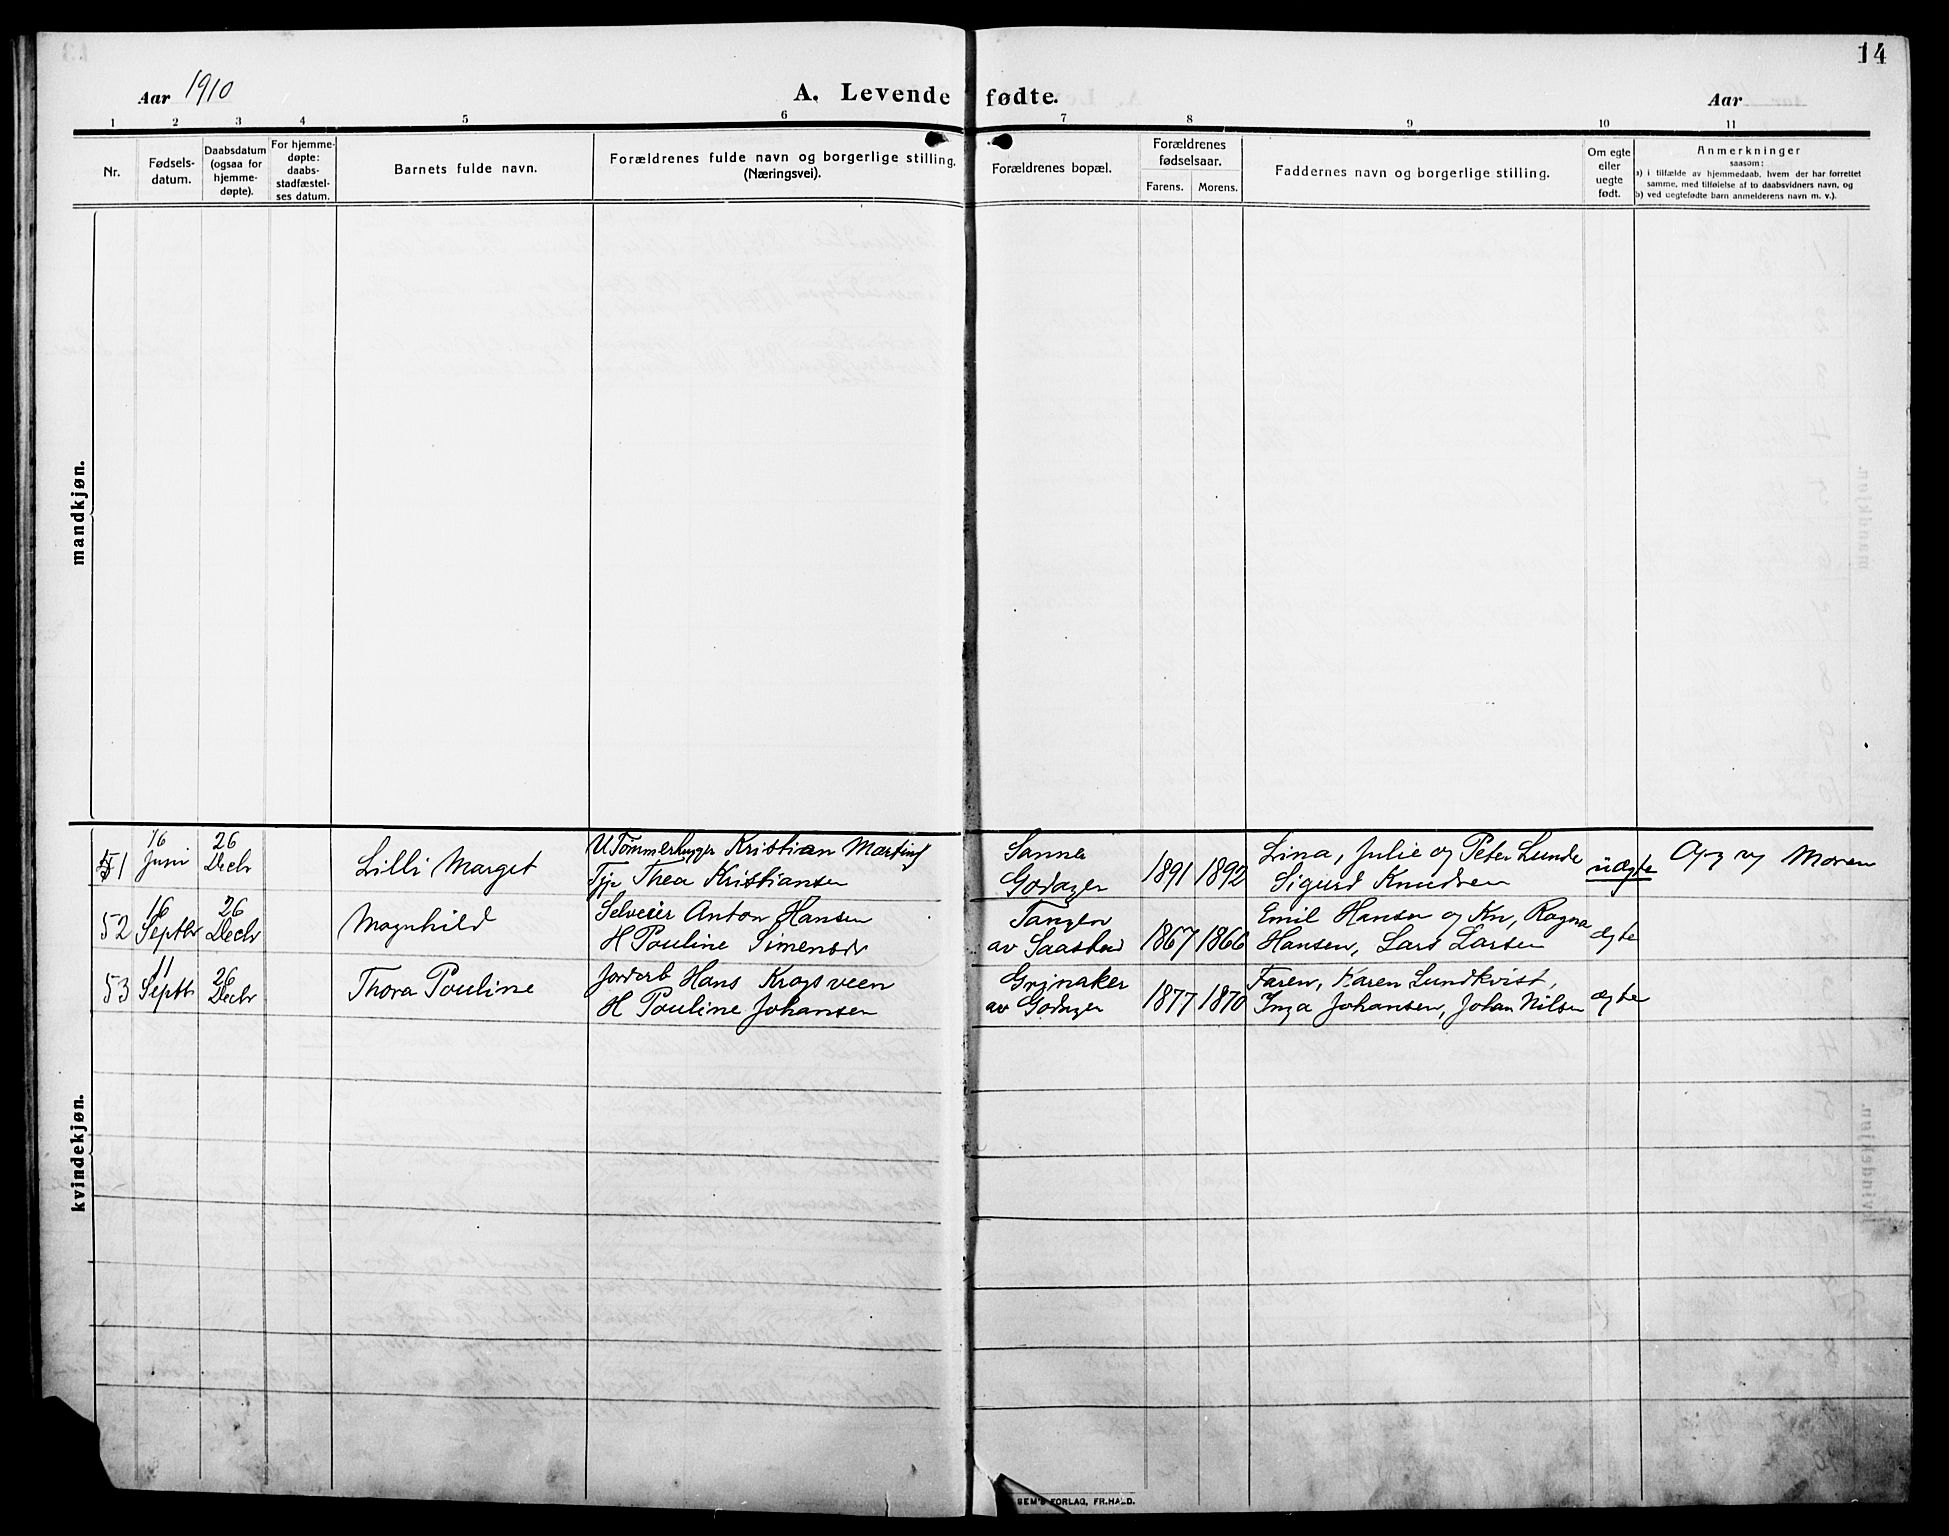 14
Aar 1910
A. Levende fødte.
Aar
1 2 3 4 5 6 7 8 9 10 11
Nr.
Fødsels-
datum.
Daabsdatum
(ogsaa for
hjemme-
døpte).
For hjemme-
døpte:
daabs-
stadfæstel-
ses datum.
Barnets fulde navn.
Forældrenes fulde navn og borgerlige stilling.
(Næringsvei).
Forældrenes bopæl.
Forældrenes
fødselsaar.
Farens. Morens.
Faddernes navn og borgerlige stilling.
Om egte
eller
uegte
født.
Anmerkninger
saasom:
a) i tilfælde av hjemmedaab, hvem der har forrettet
samme, med tilføielse av to daabsvidners navn, og
b) ved uegtefødte barn anmelderens navn m. v.).
mandkjøn.
kvindekjøn.
51
16
Juni
26
Decbr
Lilli Marget
U Tømmerhugger Kristian Martins
Tje Thea Kristiansen
Sanner
Godager
1891 1892
Lina, Julie og Peter Lunde
Sigurd Knudsen
uægte
Opg og Moren
52
16
Septbr
26
Decbr
Magnhild
Selveier Anton Hansen
H Pouline Simensdr
Tangen
av Saastad
1867 1866
Emil Hansen og Kn, Ragna
Hansen, Lars Larsen
ægte
53
11
Septb
26
Decbr
Thora Pouline
Jordarb Hans Krogsveen
H Pouline Johansen
Grinaker
av Godager
1877 1870
Faren, Karen Lundkvist,
Inga Johansen, Johan Nilsen
ægte
SEM'S FORLAG, FR.HALD.